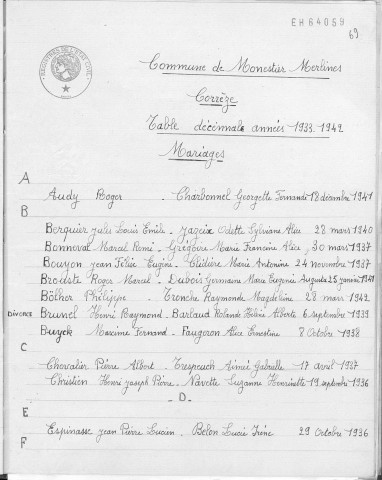 EH64059
69
Commune de Monestier Merlines
Corrèze
Table décennale années 1933-1942
Mariages
A
Audy Roger - Charbonnel Georgette Fernande 18 décembre 1941
B
Berquier Jules Louis Emile - Jageix Odette Sylviane Alice 28 mars 1940
Bonneval Marcel Remi - Grégoire Marie Francine Alice 30 mars 1937
Bouyon Jean Félix Eugène - Marie Antonine 24 novembre 1937
Brouste Roger Marcel - Dubois Germaine Marie Eugénie Augusta 25 janvier 1941
Bölher Philippe - Tronche Raymonde Magdeleine 28 mars 1942
DIVORCE Brunel Henri Raymond - Barlaud Rolande Alberte 6 septembre 1939
Buyck Maxime Fernand - Faugeron Alice Ernestine 8 Octobre 1938
C
Chevalier Pierre Albert - Trespeuch Aimée Gabrielle 17 avril 1937
Christien Henri Joseph Pierre - Navette Suzanne Henriette 19 septembre 1936
- D -
E
Espinasse Jean Pierre Lucien - Belon Lucie Irène 29 Octobre 1936
F